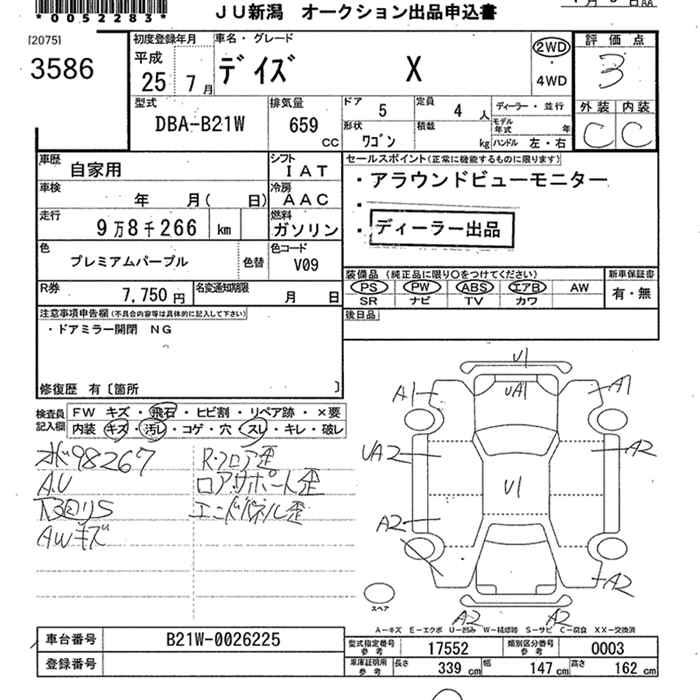 *0052283*
JU新潟 オークション出品申込書
[2075]
3586
初度登録年月 車名・グレード 評価点
平成 25 7月 デイズ X 2WD・4WD 3
型式 DBA-B21W 排気量 659 CC ドア 5 定員 4 人 ディーラー・並行 外装 内装
形状 ワゴン 積載 kg モデル年式 年 ハンドル 左・右 C C
車歴 自家用 シフト IAT セールスポイント(正常に機能するものに限ります)
車検 年 月( 日) 冷房 AAC ・アラウンドビューモニター
走行 9万8千266 km 燃料 ガソリン ・
・ ディーラー出品
色 プレミアムパープル 色替 色コード V09
装備品(純正品に限り〇をつけてください) 新車保証書
R券 7,750円 名変通知期限 月 日 PS PW ABS エアB AW 有・無
SR ナビ TV カワ
注意事項申告欄(不具合内容等は具体的に記入して下さい) 後日品
・ドアミラー開閉 NG
修復歴 有〔箇所 〕
検査員記入欄 FW キズ・飛石・ヒビ割・リペア跡・×要
内装・キズ・汚レ・コゲ・穴・スレ・キレ・破レ
98267 R.フロア歪
AU ロアサポート歪
下回りS エンドパネル歪
AWキズ
U1
A1 UA1 A1
UA2 A2
U1
A2
A2
A2 A2
スペア
A-キズ E-エクボ U-凹み W-補修跡 S-サビ C-腐食 XX-交換済
車台番号 B21W-0026225 型式指定番号 参考 17552 類別区分番号 参考 0003
登録番号 車庫証明用 参考 長さ 339 cm 幅 147 cm 高さ 162 cm